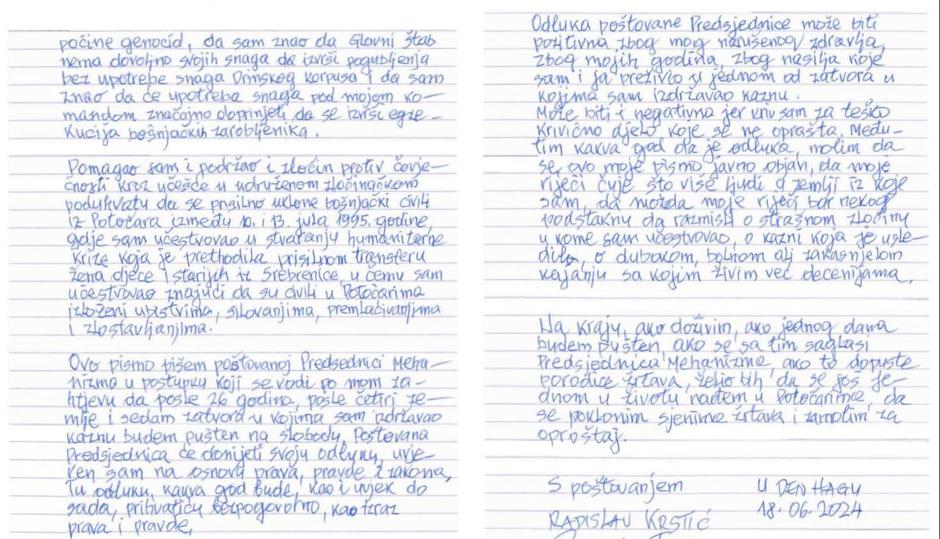 počine genocid, da sam znao da Glavni štab
nema dovoljno svojih snaga da izvrši pogubljenja
bez upotrebe snaga Drinskog korpusa i da sam
znao da će upotreba snaga pod mojom ko-
mandom značajno doprinjeti da se izvrši egze-
kucija bošnjačkih zarobljenika.
Pomagao sam i podržao i zločin protiv čovje-
čnosti kroz učešće u udruženom zločinačkom
poduhvatu da se prisilno uklone bošnjački civili
iz Potočara između 10. i 13. jula 1995. godine,
gdje sam učestvovao u stvaranju humanitarne
krize koja je prethodila prisilnom transferu
žena djece i starijih iz Srebrenice, u čemu sam
učestvovao znajući da su civili u Potočarima
izloženi ubistvima, silovanjima, premlaćivanjima
i zlostavljanjima.
Ovo pismo pišem poštovanoj Predsednici Meha-
nizma u postupku koji se vodi po mom za-
htjevu da posle 26 godina, posle četiri ze-
mlje i sedam zatvora u kojima sam izdržavao
kaznu budem pušten na slobodu. Poštovana
Predsjednica će donijeti svoju odluku, uvje-
ren sam na osnovu prava, pravde i zakona.
Tu odluku, kakva god bude, kao i uvjek do
sada, prihvatiću bezpogovorno, kao izraz
prava i pravde.
Odluka poštovane Predsjednice može biti
pozitivna zbog mog narušenog zdravlja,
zbog mojih godina, zbog nasilja koje
sam i ja preživio u jednom od zatvora u
kojima sam izdržavao kaznu.
Može biti i negativna jer kriv sam za teško
krivično djelo koje se ne oprašta. Među-
tim kakva god da je odluka, molim da
se ovo moje pismo javno objavi, da moje
riječi čuje što više ljudi u zemlji iz koje
sam, da možda moje riječi bar nekog
podstaknu da razmisli o strašnom zločinu
u kome sam učestvovao, o kazni koja je usle-
dila, o dubokom, bolnom ali zakasnjelom
kajanju sa kojim živim već decenijama.
Na kraju, ako doživim, ako jednog dana
budem pušten, ako se sa tim saglasi
Predsjednica Mehanizma, ako to dopuste
porodice žrtava, želio bih da se još je-
dnom u životu nađem u Potočarima, da
se poklonim sjenima žrtava i zamolim za
oproštaj.
S poštovanjem
U DEN HAGU
RADISLAV KRSTIĆ
18.06.2024